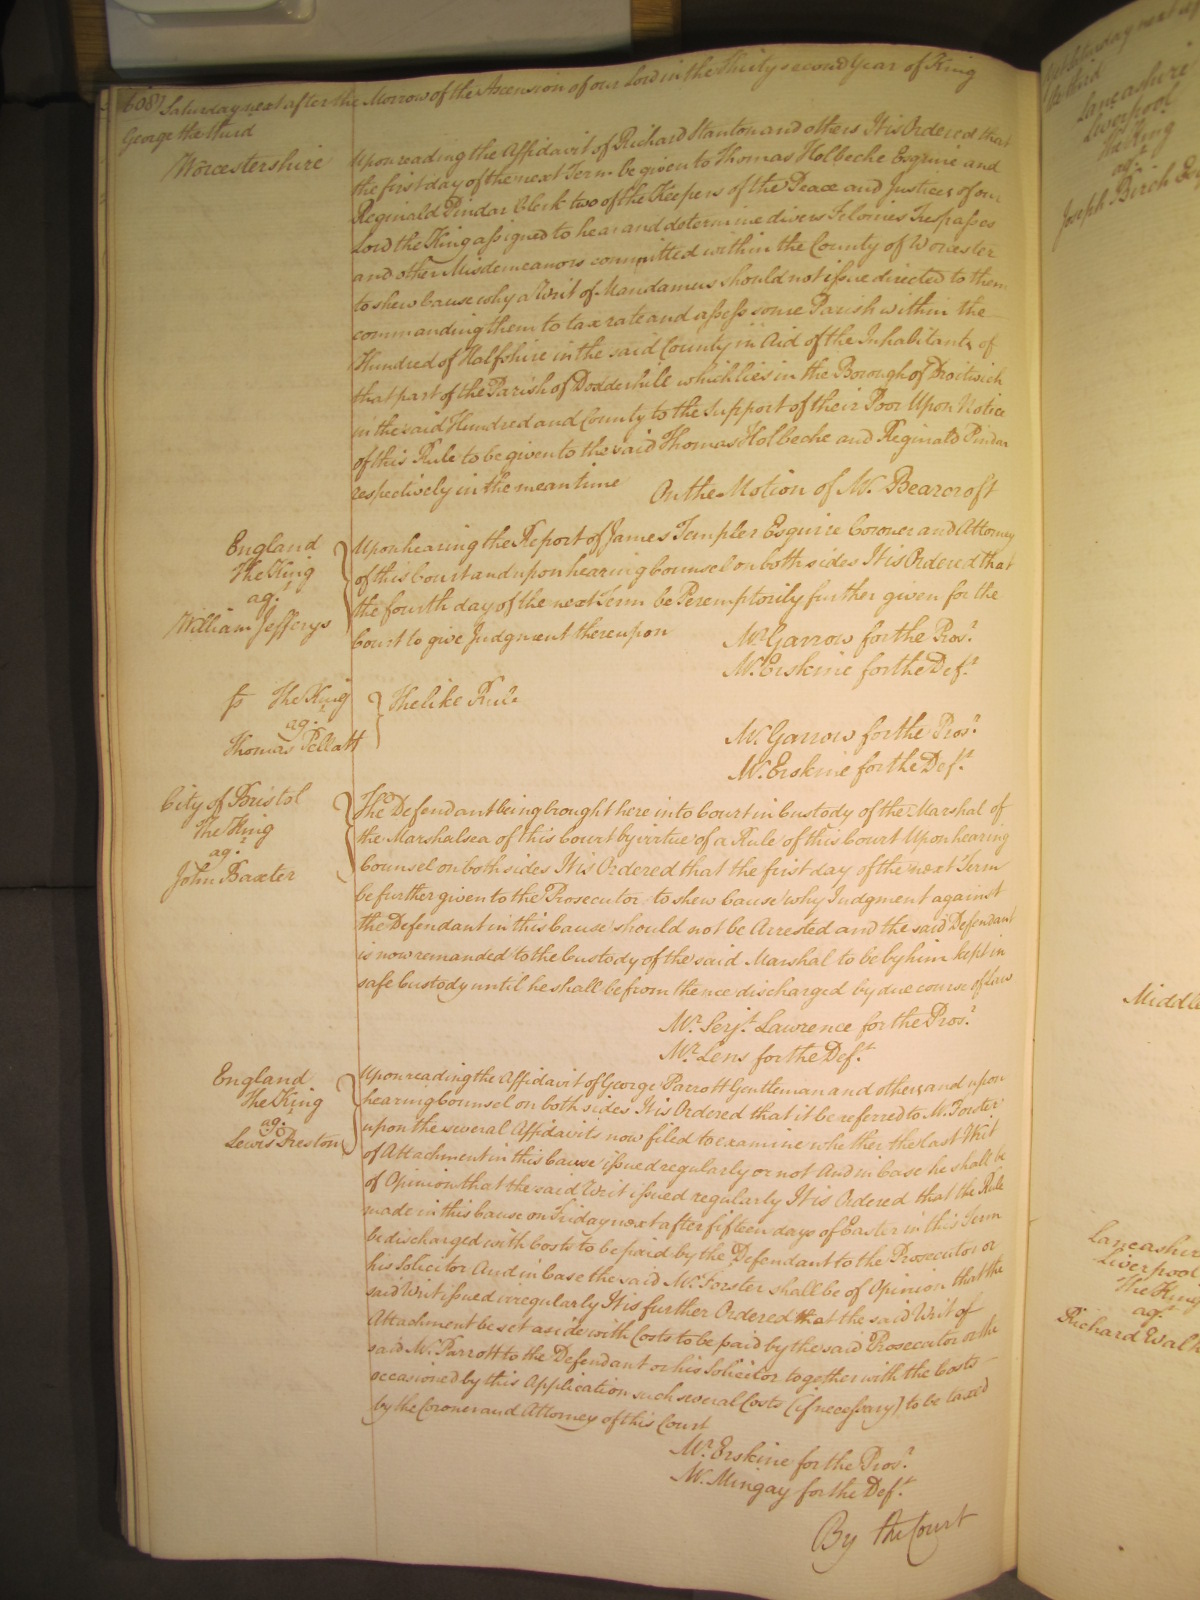 608 Saturday next after the Morrow of the Ascension of our Lord in the Thirty second Year of King
George the third
Worcestershire
Upon reading the Affidavit of Richard Stanton and others It is Ordered that
the first day of the next Term be given to Thomas Holbeche Esquire and
Reginald Pindar Clerk two of the Keepers of the Peace and Justices of our
Lord the King assigned to hear and determine divers Felonies Trespasses
and other Misdemeanors committed within the County of Worcester
to shew Cause why a Writ of Mandamus should not issue directed to them
commanding them to tax rate and assess some Parish within the
Hundred of Halfshire in the said County in Aid of the Inhabitants of
that part of the Parish of Dodderhill which lies in the Borough of Droitwich
in the said Hundred and County to the Support of their Poor Upon Notice
of this Rule to be given to the said Thomas Holbeche and Reginald Pindar
respectively in the mean time
On the Motion of Mr. Bearcroft
England
The King
agt.
William Jefferys
Upon hearing the Report of James Templer Esquire Coroner and Attorney
of this Court and upon hearing Counsel on both sides It is Ordered that
the fourth day of the next Term be Peremptorily further given for the
Court to give Judgment thereupon
Mr. Garrow for the Prosr.
Mr. Erskine for the Deft.
So The King
agt.
Thomas Pellatt
The like Rule
Mr. Garrow for the Prosr.
Mr. Erskine for the Deft.
City of Bristol
The King
agt.
John Baxter
The Defendant being brought here into Court in Custody of the Marshal of
the Marshalsea of this Court by virtue of a Rule of this Court Upon hearing
Counsel on both sides It is Ordered that the first day of the next Term
be further given to the Prosecutor to shew Cause why Judgment against
the Defendant in this Cause should not be Arrested and the said Defendant
is now remanded to the Custody of the said Marshal to be by him kept in
safe Custody until he shall be from thence discharged by due course of Law
Mr. Serjt. Lawrence for the Prosr.
Mr. Lens for the Deft.
England
The King
agt.
Lewis Preston
Upon reading the Affidavit of George Parrott Gentleman and others and upon
hearing Counsel on both sides It is Ordered that it be referred to Mr. Forster
upon the several Affidavits now filed to examine whether the last Writ
of Attachment in this Cause issued regularly or not And in Case he shall be
of Opinion that the said Writ issued regularly It is Ordered that the Rule
made in this Cause on Friday next after fifteen days of Easter in this Term
be discharged with Costs to be paid by the Defendant to the Prosecutor or
his Solicitor And in Case the said Mr. Forster shall be of Opinion that the
said Writ issued irregularly It is further Ordered that the said Writ of
Attachment be set aside with Costs to be paid by the said Prosecutor or the
said Mr. Parrott to the Defendant or his Solicitor together with the Costs
occasioned by this Application such several Costs (if necessary) to be taxed
by the Coroner and Attorney of this Court
Mr. Erskine for the Prosr.
Mr. Mingay for the Deft.
By the Court
Lancashire
Liverpool
The King
agt.
Joseph Birch
Middle
Lancashire
Liverpool
The King
agt.
Richard